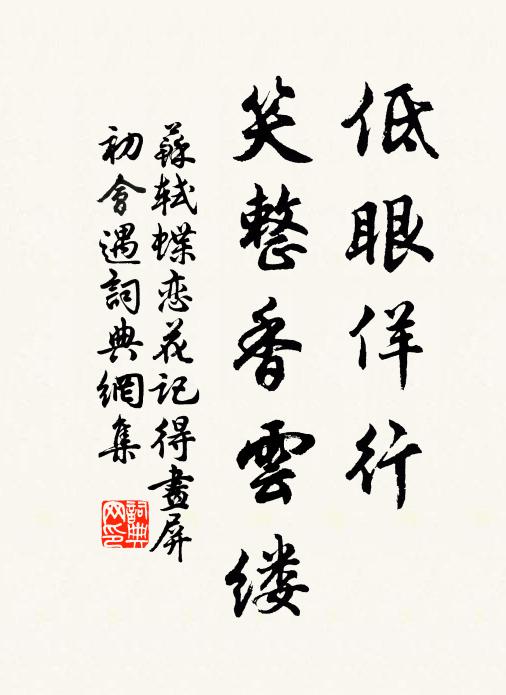 低眼佯行
笑整香雲缕
蘇軾蝶恋花记得畫屏
初會遇詞典網集
詞典网印